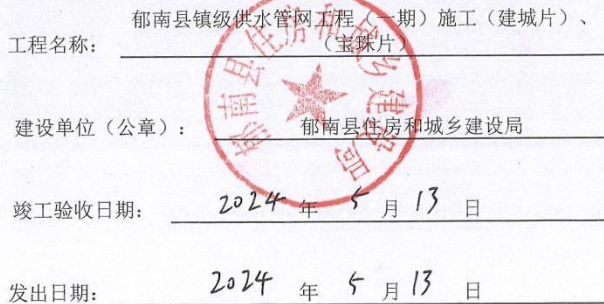 郁南县镇级供水管网工程（一期）施工（建城片）、
工程名称：（宝珠片）
建设单位（公章）：郁南县住房和城乡建设局
郁南县住房和城乡建设局
竣工验收日期：2024 年 5 月 13 日
发出日期：2024 年 5 月 13 日